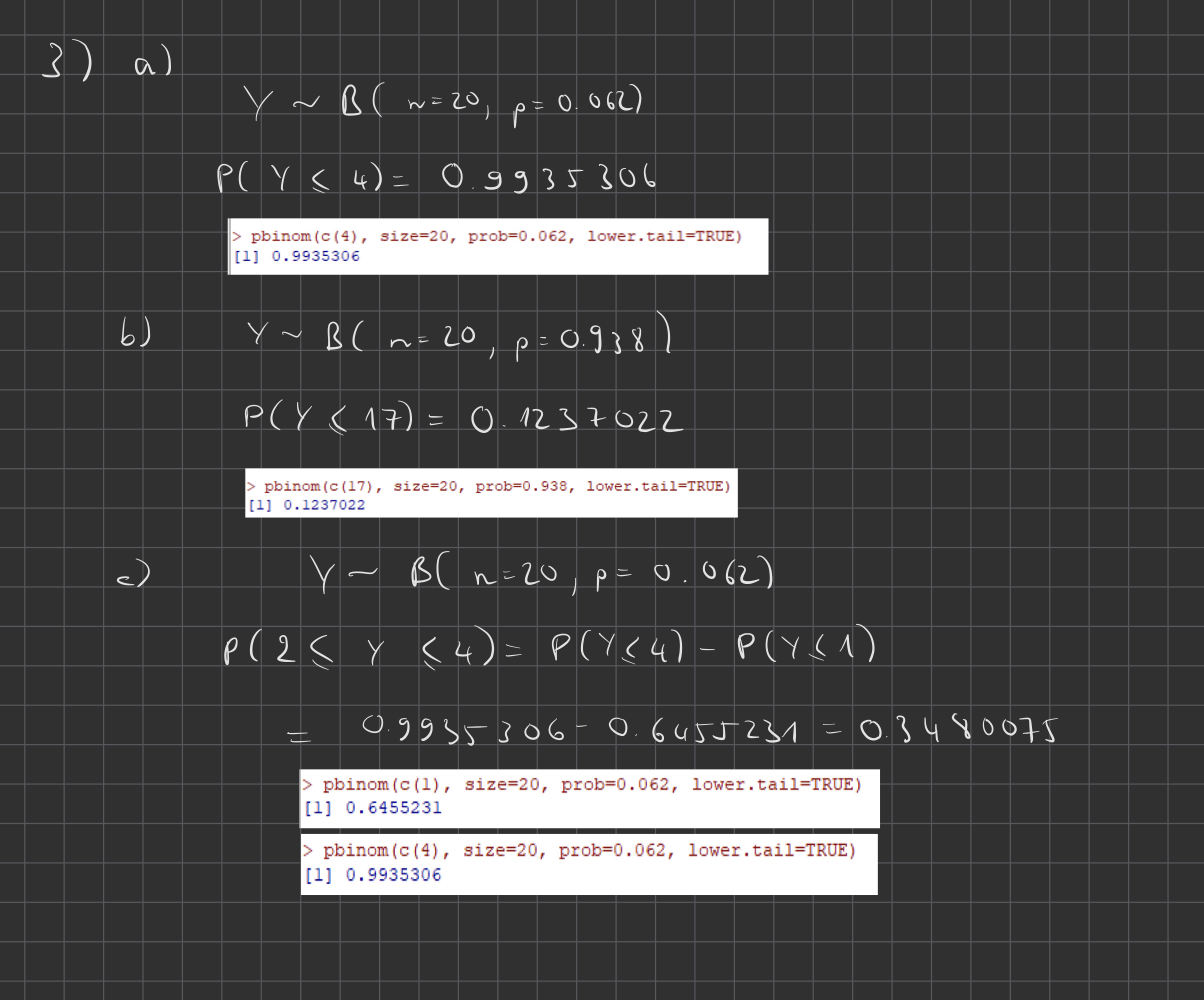 3) a)
Y ~ B( n=20, p=0.062)
P( Y ≤ 4) = 0.9935306
> pbinom(c(4), size=20, prob=0.062, lower.tail=TRUE)
[1] 0.9935306
b) Y ~ B( n=20, p=0.938)
P(Y ≤ 17) = 0.1237022
> pbinom(c(17), size=20, prob=0.938, lower.tail=TRUE)
[1] 0.1237022
c) Y ~ B( n=20, p= 0.062)
P(2 ≤ Y ≤ 4) = P(Y ≤ 4) - P(Y ≤ 1)
= 0.9935306 - 0.6455231 = 0.3480075
> pbinom(c(1), size=20, prob=0.062, lower.tail=TRUE)
[1] 0.6455231
> pbinom(c(4), size=20, prob=0.062, lower.tail=TRUE)
[1] 0.9935306